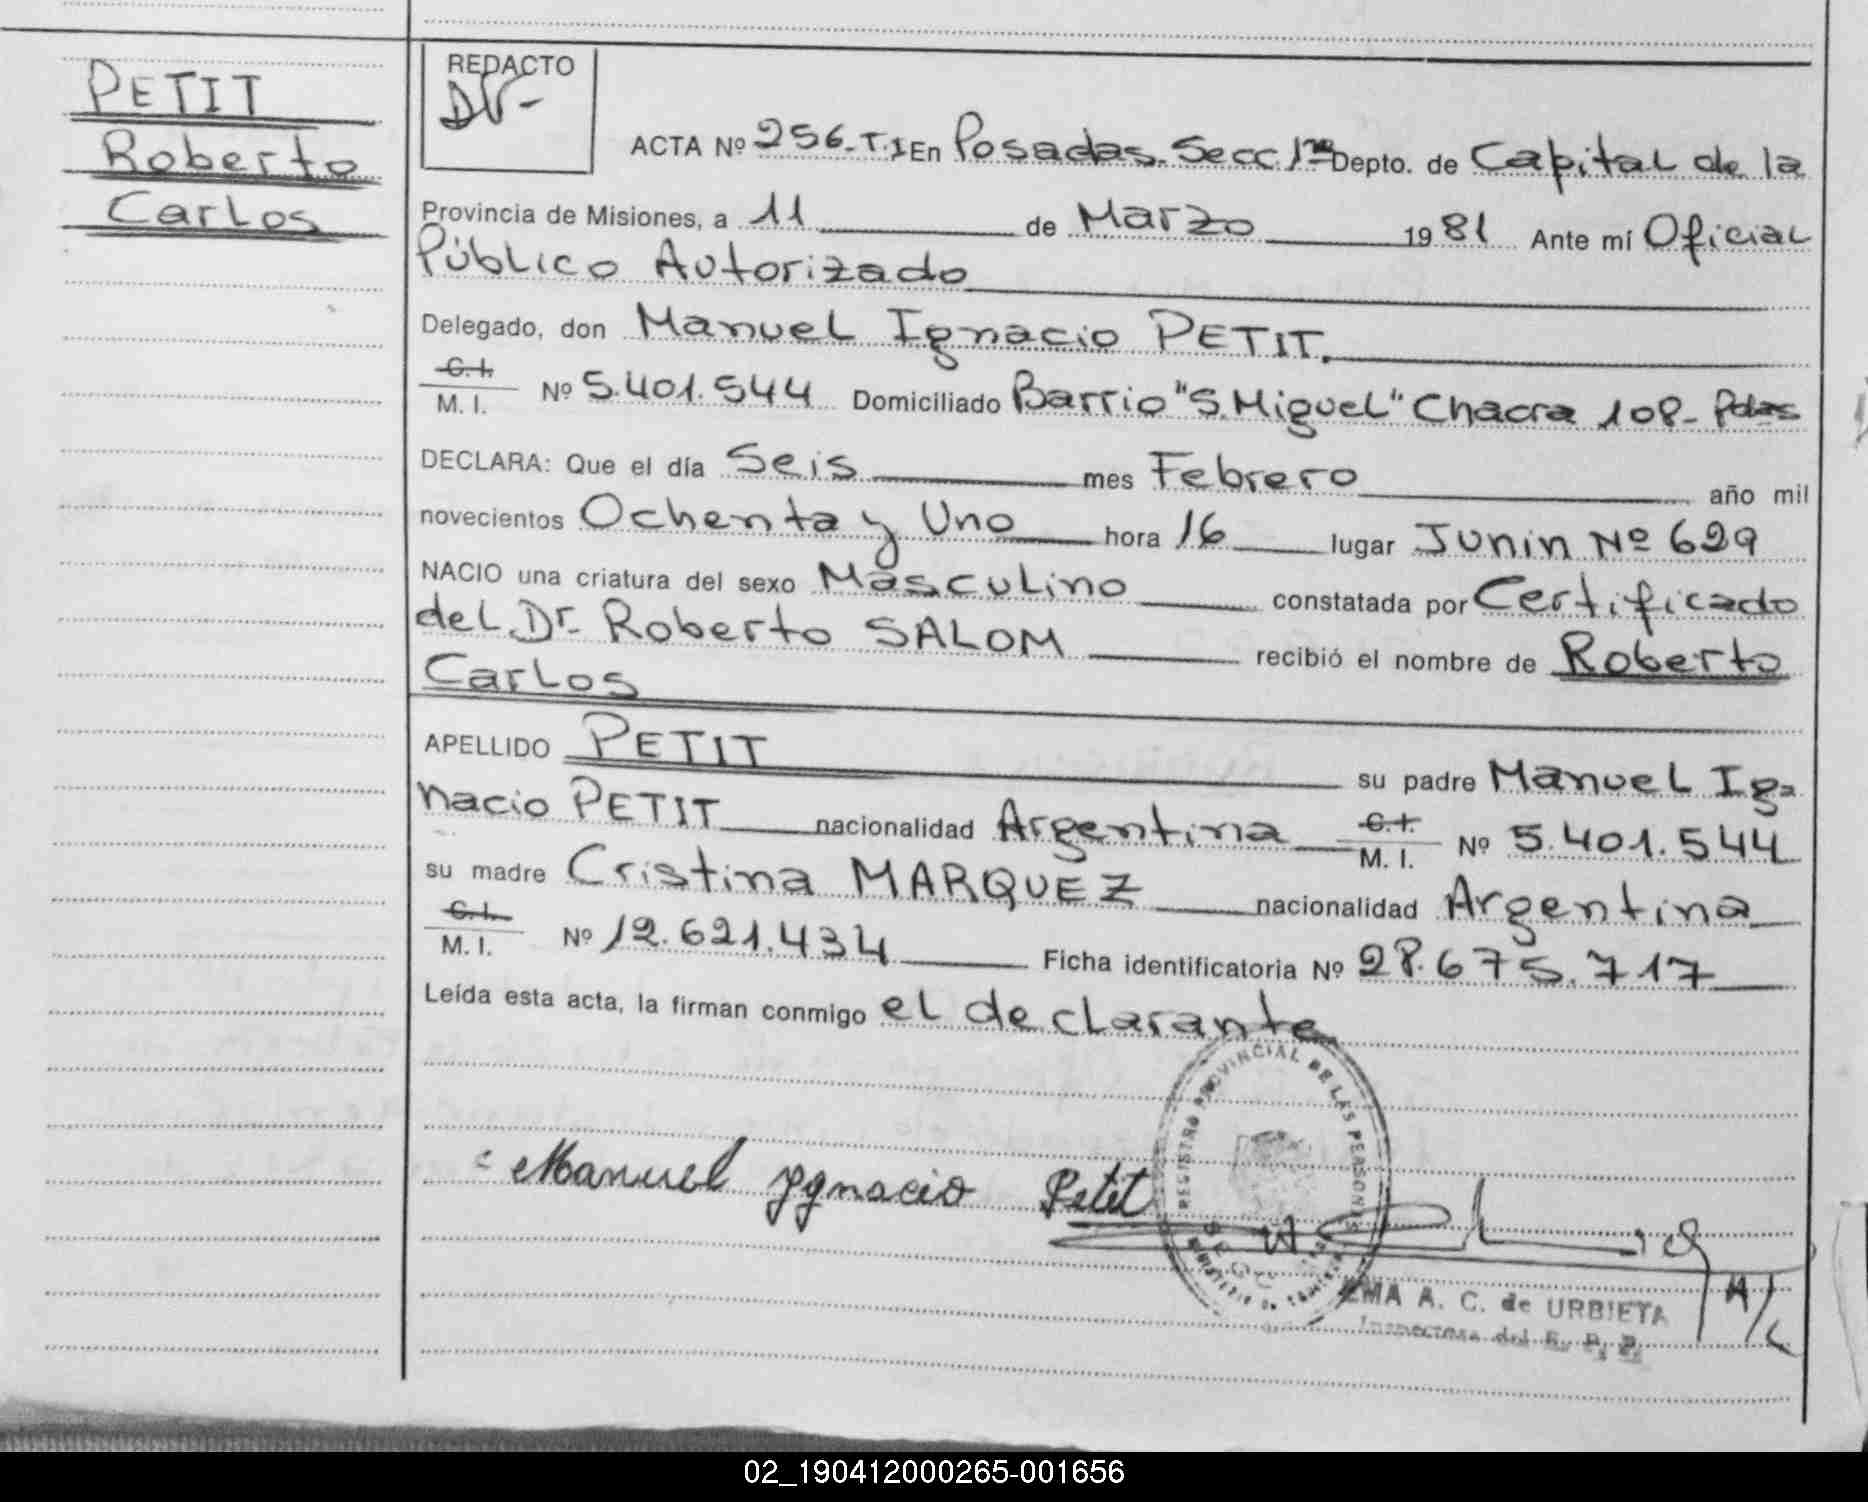 PETIT
Roberto
Carlos
REDACTO
ACTA Nº 256-T.I En Posadas-Secc 1ra Depto. de Capital de la
Provincia de Misiones, a 11 de Marzo 1981 Ante mí Oficial
Público Autorizado
Delegado, don Manuel Ignacio PETIT.
C.I.
M. I. Nº 5.401.544 Domiciliado Barrio "S.Miguel" Chacra 108- Pdas
DECLARA: Que el día Seis mes Febrero año mil
novecientos Ochenta y Uno hora 16 lugar Junin Nº 629
NACIO una criatura del sexo Masculino constatada por Certificado
del Dr. Roberto SALOM recibió el nombre de Roberto
Carlos
APELLIDO PETIT su padre Manuel Ig-
nacio PETIT nacionalidad Argentina C.I. M. I. Nº 5.401.544
su madre Cristina MARQUEZ nacionalidad Argentina
C.I.
M. I. Nº 12.621.434 Ficha identificatoria Nº 28.675.717
Leída esta acta, la firman conmigo el declarante
REGISTRO PROVINCIAL DE LAS PERSONAS
Manuel Ygnacio Petit
A. C. de URBIETA
Inspectora del R. P. P.
02_190412000265-001656